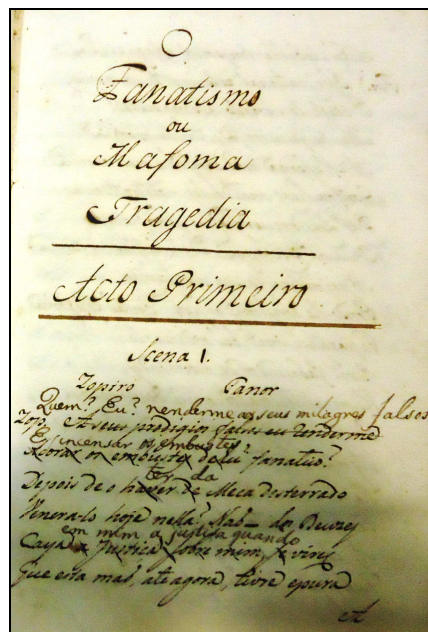 O
Fanatismo
ou
Mafoma
Tragedia
Acto Primeiro
Scena 1.
Zopiro Fanor
Quem? Eu? renderme a seus milagres falsos
Zop. A seus prodigios falsos eu renderme
E incensar os embustes
Adorar os embustes de hu' fanatico?
ter da
Depois de o haver de Meca desterrado
Venera-lo hoje nella? Naõ_ dos Deuzes
em mim a justiça quando
Caya a Justiça sobre mim, se vires
Que esta maõ, ate agora, livre e pura